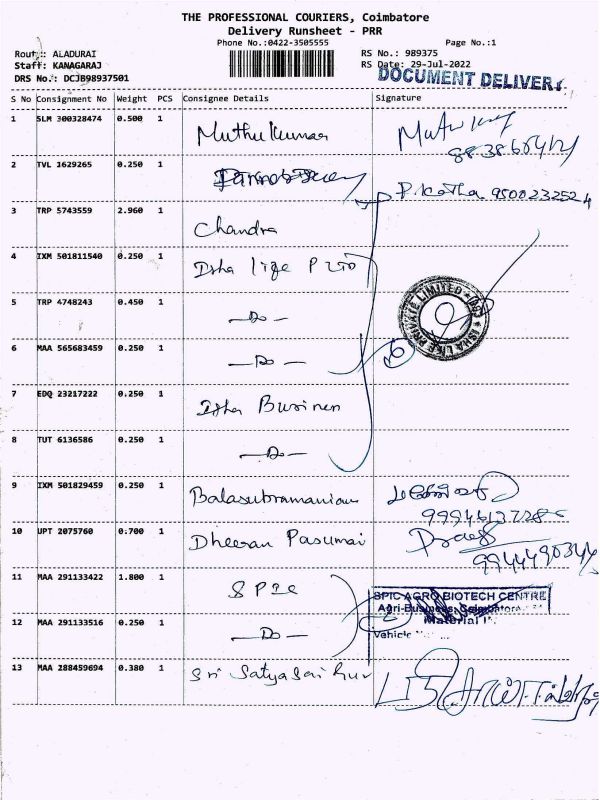 THE PROFESSIONAL COURIERS, Coimbatore
Delivery Runsheet - PRR
Phone No.:0422-3505555
Page No.:1
Route: ALADURAI
RS No.: 989375
Staff: KANAGARAJ
RS Date: 29-Jul-2022
DRS No.: DCJB98937501
DOCUMENT DELIVER
S No Consignment No Weight PCS Consignee Details Signature
1 SLM 300328474 0.500 1 Muthukumar
2 TVL 1629265 0.250 1
P. 9500232524
3 TRP 5743559 2.960 1 Chandra
4 IXM 501811540 0.250 1 Isha life P LTD
ISHA LIFE PRIVATE LIMITED
5 TRP 4748243 0.450 1 -Do-
6 MAA 565683459 0.250 1 -Do-
7 EDQ 23217222 0.250 1 Isha Business
8 TUT 6136586 0.250 1 -Do-
9 IXM 501829459 0.250 1 Balasubramaniam
10 UPT 2075760 0.700 1 Dheeran Pasumai
9944490344
11 MAA 291133422 1.800 1 SPIC
SPIC AGRO BIOTECH CENTRE
Agri-Business, Coimbatore
12 MAA 291133516 0.250 1 -Do-
Material
Vehicle
13 MAA 288459694 0.380 1 Sri Satya Sai